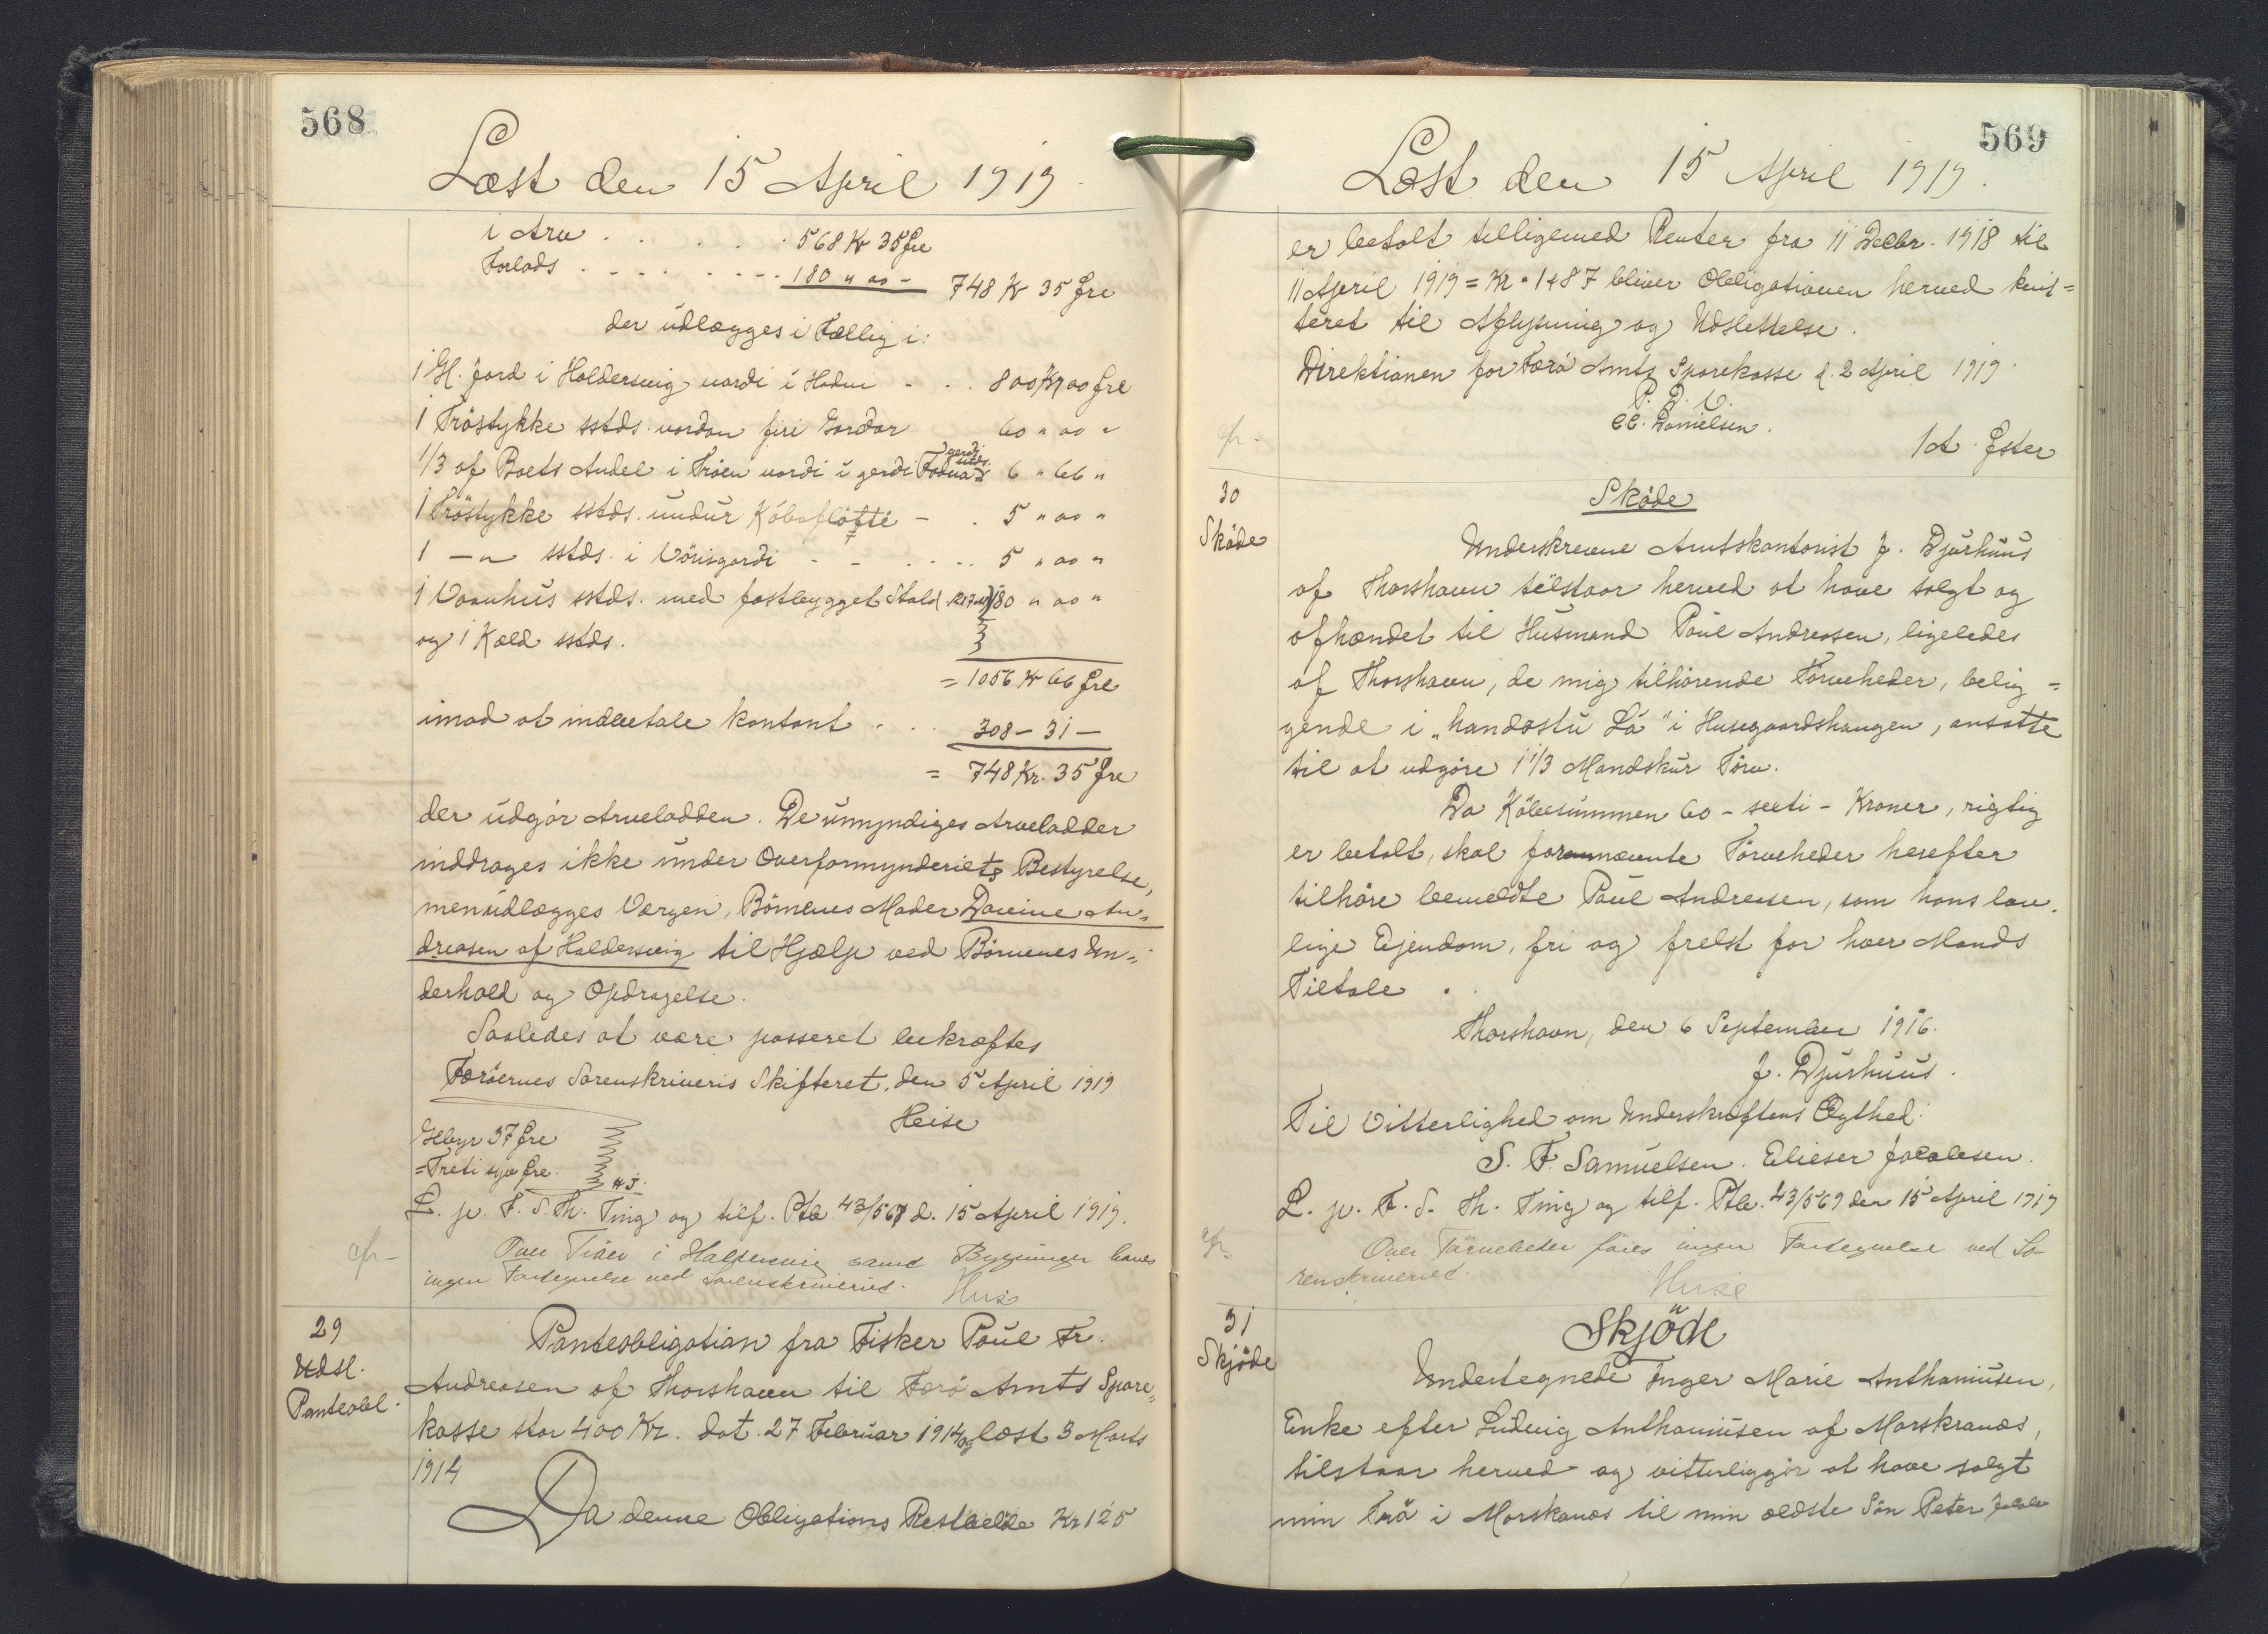 568
Læst den 15 April 1919.
i Arv . . . . . 568 Kr 35 Øre
Forlods . - - - . - - - 180 " 00 - 748 Kr 35 Øre
der udlægges i Fællig i:
1 Gl. Jord i Haldersvig nordi i Hodni - . . 800 Kr 00 Øre
1 Tröstykke sstds. nordan firi Gardar 60 " 00 "
1/3 af Boets Andel i Tröen nordi i gerdi sstds. 6 " 66 "
1 Tröstykke sstds. undur - . 5 " 00 "
1 — " sstds. i Vörisgardi - - . . - - 5 " 00 "
1 Vaanhus sstds. med fastbygget Stald 180 " 00 "
og 1 Kæld sstds.
= 1056 Kr 66 Øre
imod at indbetale kontant . . . 308 - 31 -
= 748 Kr. 35 Øre
der udgör Arvelodden. De umyndiges Arvelodder
inddrages ikke under Overformynderiets Bestyrelse,
men udlægges Værgen, Börnenes Moder Davine An-
dreasen af Haldersvig til Hjælp ved Börnenes Un-
derhold og Opdragelse.
Saaledes at være passeret bekræftes
Færöernes Sorenskriveris Skifteret, den 5 April 1919
Heise
Gebyr 37 Øre
= Treti syv Øre. HJ.
L. p. F. S. Th. Ting og tilf. Ptb. 43/567 d. 15 April 1919.
cfr -
Over Tröer i Haldersvig samt Bygninger haves
ingen Fortegnelse ved Sorenskriveriet. Heise
29
Udsl.
Panteobl.
Panteobligation fra Fisker Poul Fr.
Andreasen af Thorshavn til Færö Amts Spare-
kasse stor 400 Kr. dat. 27 Februar 1914 og læst 3 Marts
1914
Da denne Obligations Restbeløb Kr 125
569
Læst den 15 April 1919.
er betalt tilligemed Renter fra 11 Decbr. 1918 til
11 April 1919 = Kr. 1 # 87 bliver Obligationen herved kvit-
teret til Aflysning og Udslettelse.
Direktionen for Færö Amts Sparekasse d. 2 April 1919
P. D. V.
C.C. Danielsen.
cfr -
/ A. Öster
30
Sköde
Sköde
Underskrevne Amtskontorist J. Djurhuus
af Thorshavn tilstaar herved at have solgt og
afhændet til Husmand Poul Andreasen, ligeledes
af Thorshavn, de mig tilhörende Törveheder, belig-
gende i "handastu Lá" i Husegaardshaugen, ansatte
til at udgöre 1 1/3 Mandskur Törv.
Da Köbesummen 60 - seeti - Kroner, rigtig
er betalt, skal forannævnte Törveheder herefter
tilhöre bemeldte Poul Andreasen, som hans lov-
lige Ejendom, fri og frelst for hver Mands
Tiltale .
Thorshavn, den 6 September 1916.
J. Djurhuus.
Til Vitterlighed om Underskriftens Ægthed:
S. F. Samuelsen. Elieser Jacobsen.
L. p. F. S. Th. Ting og tilf. Ptb. 43/569 den 15 April 1919
cfr.
Over Törveheder föres ingen Fortegnelse ved So-
renskriveriet. Heise
31
Skjöde
Skjöde
Undertegnede Inger Marie Anthoniusen,
Enke efter Ludvig Anthoniusen af Morskranæs,
tilstaar herved og vitterliggör at have solgt
min Trö i Morskanæs til min ældste Sön Peter Jakob